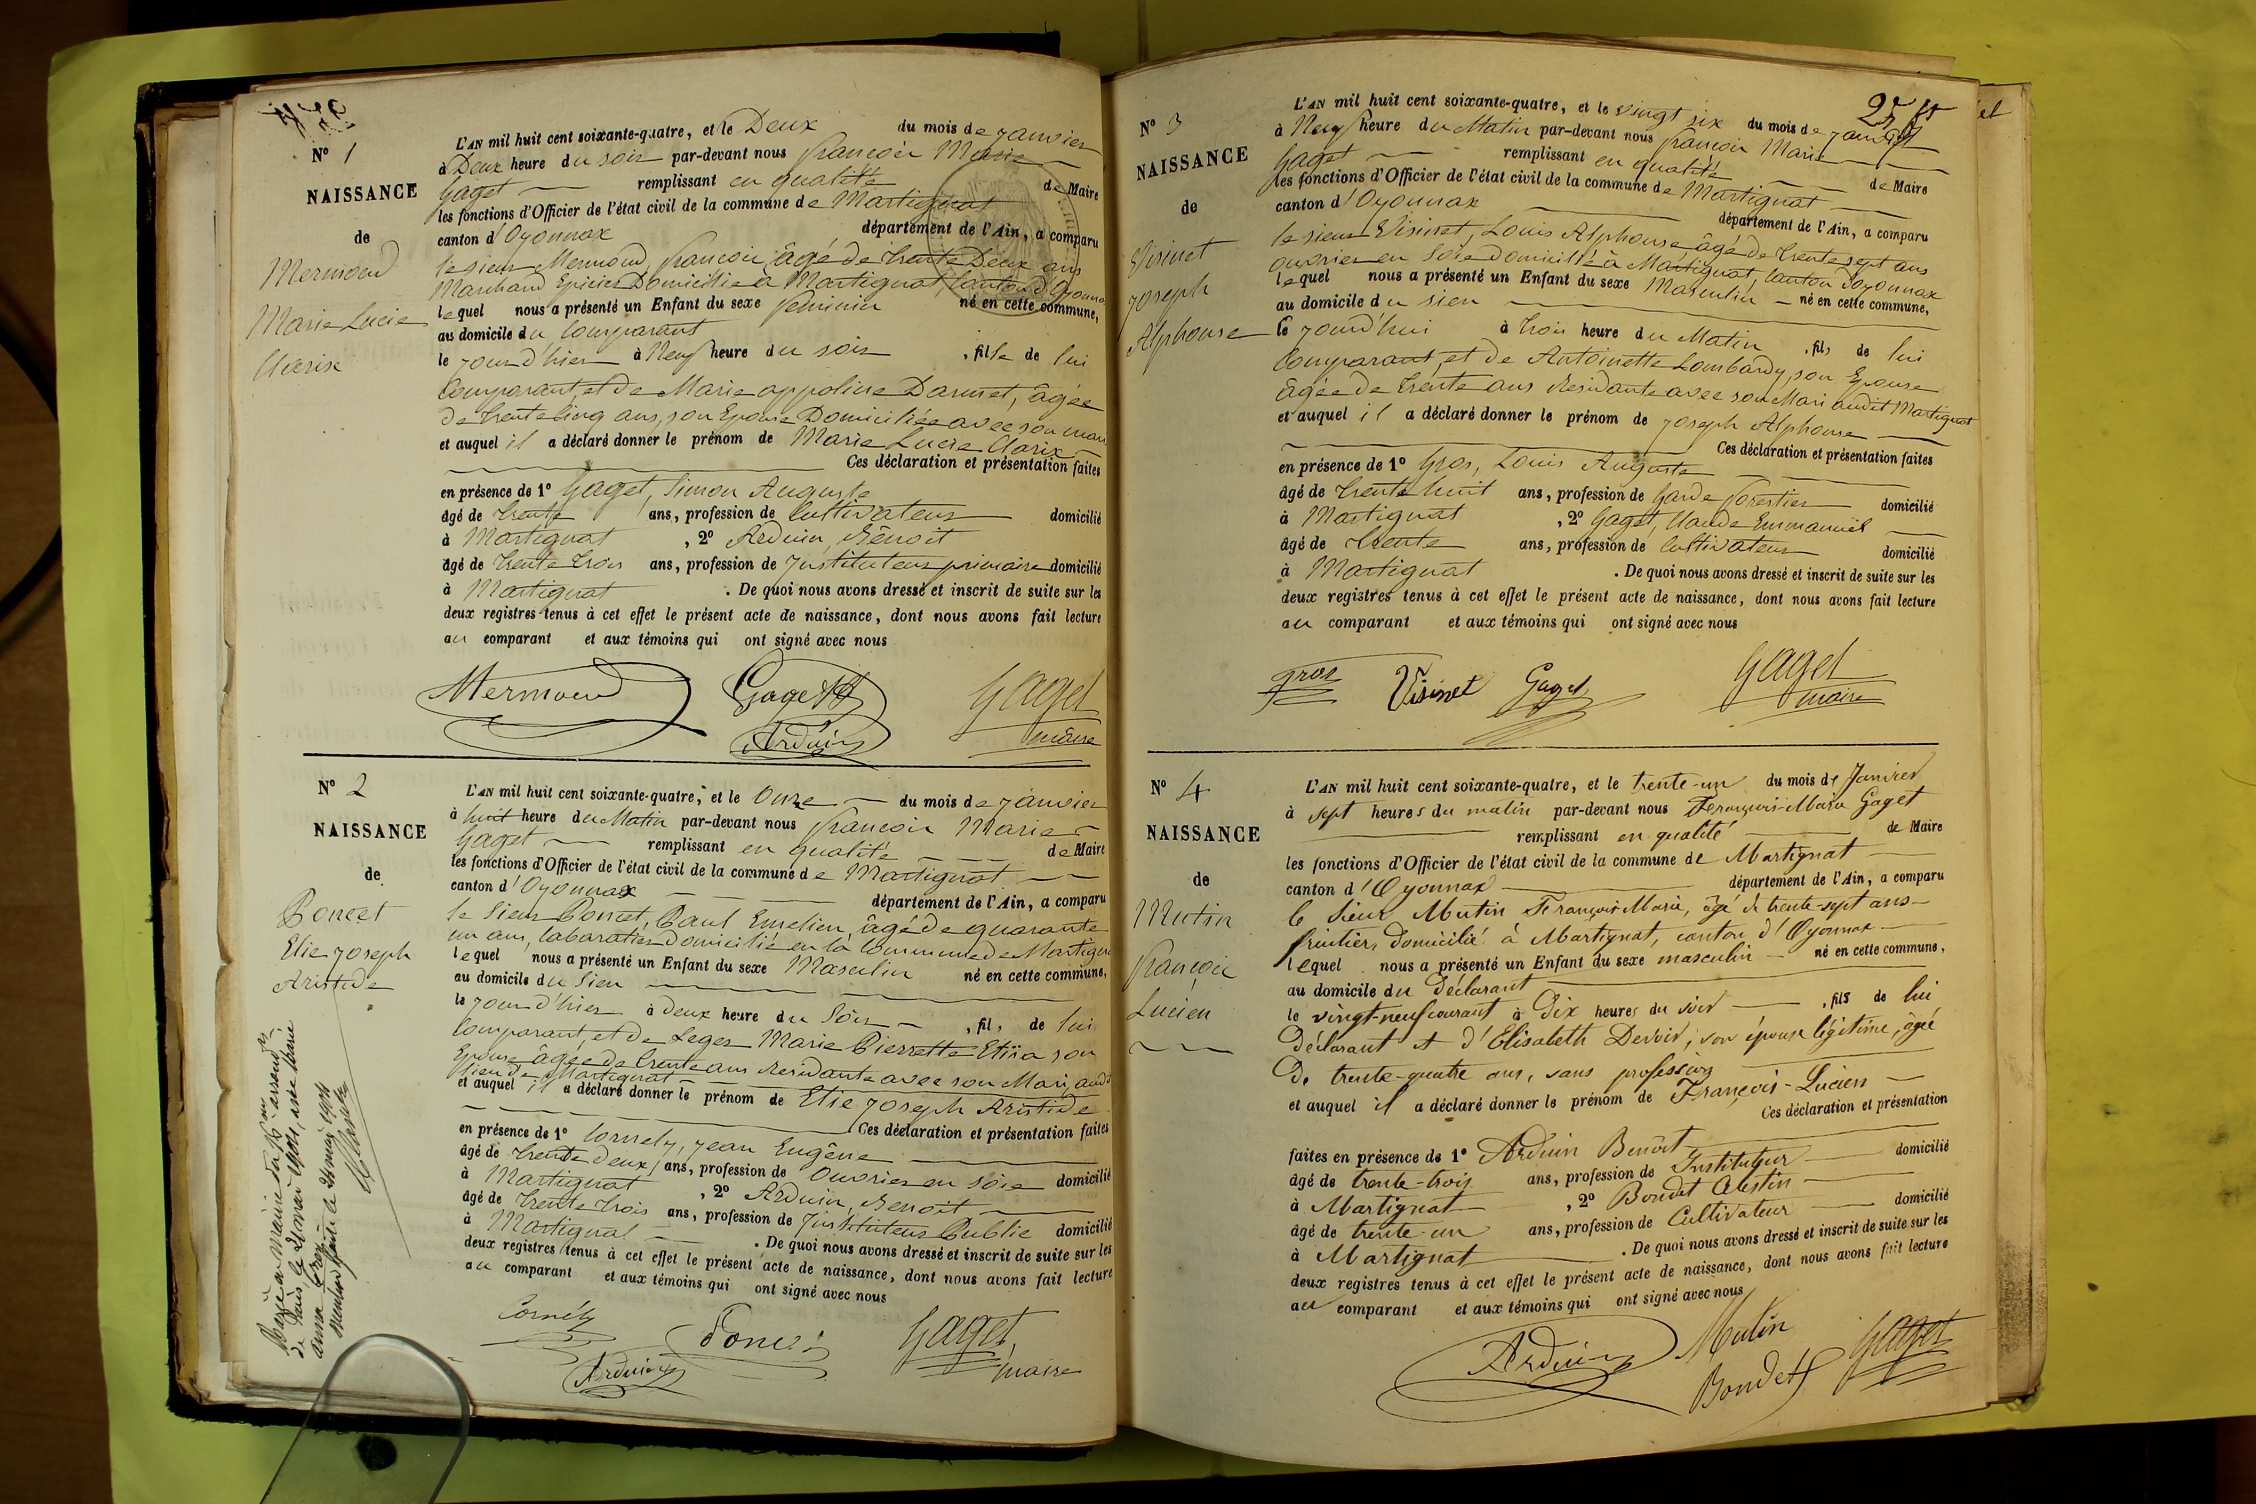 Nº 1
NAISSANCE
de
Mermond
Marie Lucie
Clarix
L'AN mil huit cent soixante-quatre, et le Deux du mois de janvier
à Deux heure du soir par-devant nous françois Marie
Gaget remplissant en qualité de Maire
les fonctions d'Officier de l'état civil de la commune de Martignat
canton d'Oyonnax département de l'Ain, a comparu
le sieur Mermond, françois âgé de trente Deux ans
Marchand Epicier Domicilié à Martignat, canton d'Oyonnax
lequel nous a présenté un Enfant du sexe féminin né en cette commune,
au domicile du Comparant
le jour d'hier à Neuf heure du soir, fille de lui
Comparant, et de Marie appoline Darmet, âgée
de trente cinq ans, son Epouse Domiciliée avec son mari
et auquel il a déclaré donner le prénom de Marie Lucie Clarix
Ces déclaration et présentation faites
en présence de 1º Gaget, Simon Auguste
âgé de trente ans, profession de Cultivateur domicilié
à Martignat, 2º Arduin, Benoit
âgé de trente trois ans, profession de Instituteur primaire domicilié
à Martignat. De quoi nous avons dressé et inscrit de suite sur les
deux registres tenus à cet effet le présent acte de naissance, dont nous avons fait lecture
au comparant et aux témoins qui ont signé avec nous
Mermond Gaget Gaget
Arduin maire
Nº 2
NAISSANCE
de
Poncet
Elie joseph
Aristide
L'AN mil huit cent soixante-quatre, et le Onze du mois de janvier
à huit heure du Matin par-devant nous françois Marie
Gaget remplissant en qualité de Maire
les fonctions d'Officier de l'état civil de la commune de Martignat
canton d'Oyonnax département de l'Ain, a comparu
le Sieur Poncet, Paul Emelien, âgé de quarante
un ans, Cabaratier domicilié en la Commune de Martignat
lequel nous a présenté un Enfant du sexe Masculin né en cette commune,
au domicile du Sien
le jour d'hier à deux heure du Soir, fils de lui
Comparant, et de Leger Marie Pierrette son
Epouse âgée de trente ans residante avec son Mari, audit
lieu de Martignat
et auquel il a déclaré donner le prénom de Elie joseph Aristide
Ces déclaration et présentation faites
en présence de 1º Cornely, jean Eugène
âgé de trente deux ans, profession de Ouvrier en Soie domicilié
à Martignat, 2º Arduin, Benoit
âgé de trente trois ans, profession de Instituteur Public domicilié
à Martignat. De quoi nous avons dressé et inscrit de suite sur les
deux registres tenus à cet effet le présent acte de naissance, dont nous avons fait lecture
au comparant et aux témoins qui ont signé avec nous
Cornély Poncet Gaget
Arduin maire
Nº 3
NAISSANCE
de
Visinet
joseph
Alphonse
L'AN mil huit cent soixante-quatre, et le vingt six du mois de janvier
à Neuf heure du Matin par-devant nous françois Marie
Gaget remplissant en qualité de Maire
les fonctions d'Officier de l'état civil de la commune de Martignat
canton d'Oyonnax département de l'Ain, a comparu
le sieur Visinet, Louis Alphonse âgé de trente sept ans
ouvrier en Soie domicilié à Martignat, Canton d'Oyonnax
lequel nous a présenté un Enfant du sexe Masculin né en cette commune,
au domicile du sien
le jourd'hui à trois heure du Matin, fils de lui
Comparant, et de Antoinette Lombardy, son Epouse
âgée de trente ans residante avec son Mari audit Martignat
et auquel il a déclaré donner le prénom de joseph Alphonse
Ces déclaration et présentation faites
en présence de 1º Gros, Louis Auguste
âgé de trente huit ans, profession de Garde forestier domicilié
à Martignat, 2º Gaget, Claude Emmanuel
âgé de trente ans, profession de Cultivateur domicilié
à Martignat. De quoi nous avons dressé et inscrit de suite sur les
deux registres tenus à cet effet le présent acte de naissance, dont nous avons fait lecture
au comparant et aux témoins qui ont signé avec nous
gros Visinet Gaget Gaget
maire
Nº 4
NAISSANCE
de
Mutin
françois
Lucien
L'AN mil huit cent soixante-quatre, et le trente-un du mois de Janvier
à sept heures du matin par-devant nous François-Marie Gaget
remplissant en qualité de Maire
les fonctions d'Officier de l'état civil de la commune de Martignat
canton d'Oyonnax département de l'Ain, a comparu
le Sieur Mutin François Marie, âgé de trente-sept ans
fruitier, domicilié à Martignat, canton d'Oyonnax
lequel nous a présenté un Enfant du sexe masculin né en cette commune,
au domicile du déclarant
le vingt-neuf courant à Dix heures du soir, fils de lui
Déclarant et d'Elisabeth Devoir, son épouse légitime, âgée
De trente-quatre ans, sans profession
et auquel il a déclaré donner le prénom de François-Lucien
Ces déclaration et présentation
faites en présence de 1º Arduin Benoît
âgé de trente-trois ans, profession de Instituteur domicilié
à Martignat, 2º Bondet Célestin
âgé de trente-un ans, profession de Cultivateur domicilié
à Martignat. De quoi nous avons dressé et inscrit de suite sur les
deux registres tenus à cet effet le présent acte de naissance, dont nous avons fait lecture
au comparant et aux témoins qui ont signé avec nous
Arduin Mutin Gaget
Bondet